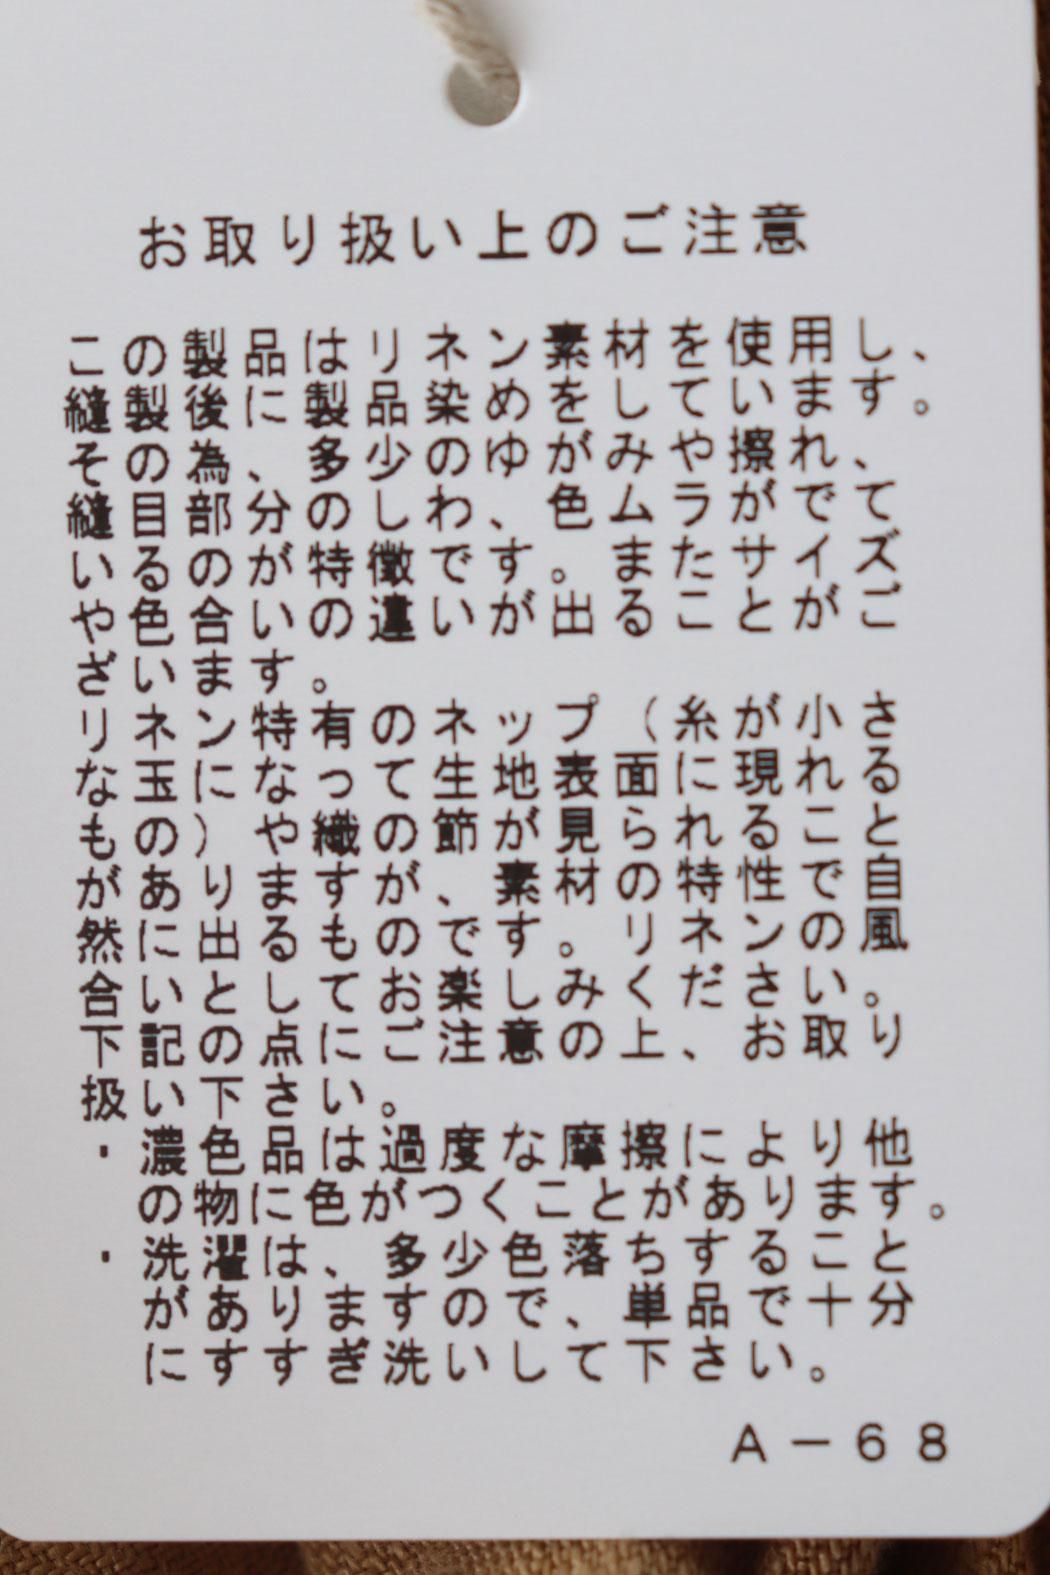 お取り扱い上のご注意
この製品はリネン素材を使用し、
縫製後に製品染めをしています。
その為、多少のゆがみや擦れ、
縫目部分のしわ、色ムラがでて
いるのが特徴です。またサイズ
や色の合いの違いが出ることがご
ざいます。
リネン特有のネップ（糸が小さ
な玉になって生地表面に現れると
もの）や織の節が見られることと
があります が、素材の特性で自
然に出るものです。リネンの風
合いとしてお楽しみください。
下記の点にご注意の上、お取り
扱い下さい。
・濃色品は過度な摩擦により他
の物に色がつくことがあります。
・洗濯は、多少色落ちすること
がありますので、単品で十分
にすすぎ洗いして下さい。
A－68